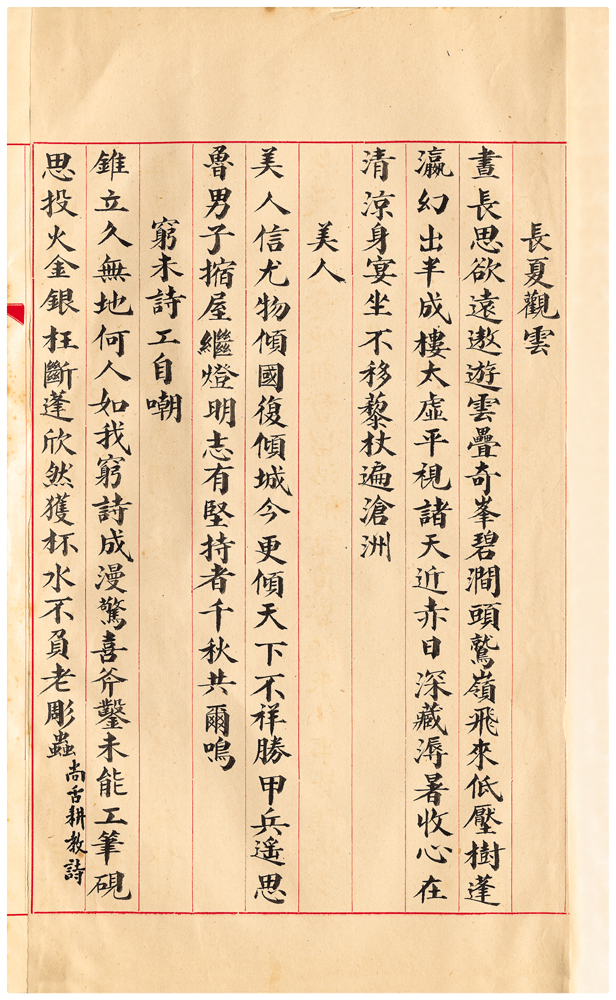 長夏觀雲
晝長思欲遠遨遊雲疊奇峯碧澗頭鷲嶺飛來低壓樹蓬
瀛幻出半成樓太虛平視諸天近赤日深藏溽暑收心在
清涼身宴坐不移藜杖遍滄洲
美人
美人信尤物傾國復傾城今更傾天下不祥勝甲兵遙思
魯男子摍屋繼燈明志有堅持者千秋共爾鳴
窮未詩工自嘲
錐立久無地何人如我窮詩成漫驚喜斧鑿未能工筆硯
思投火金銀枉斷蓬欣然獲杯水不負老彫蟲
尚舌耕教詩